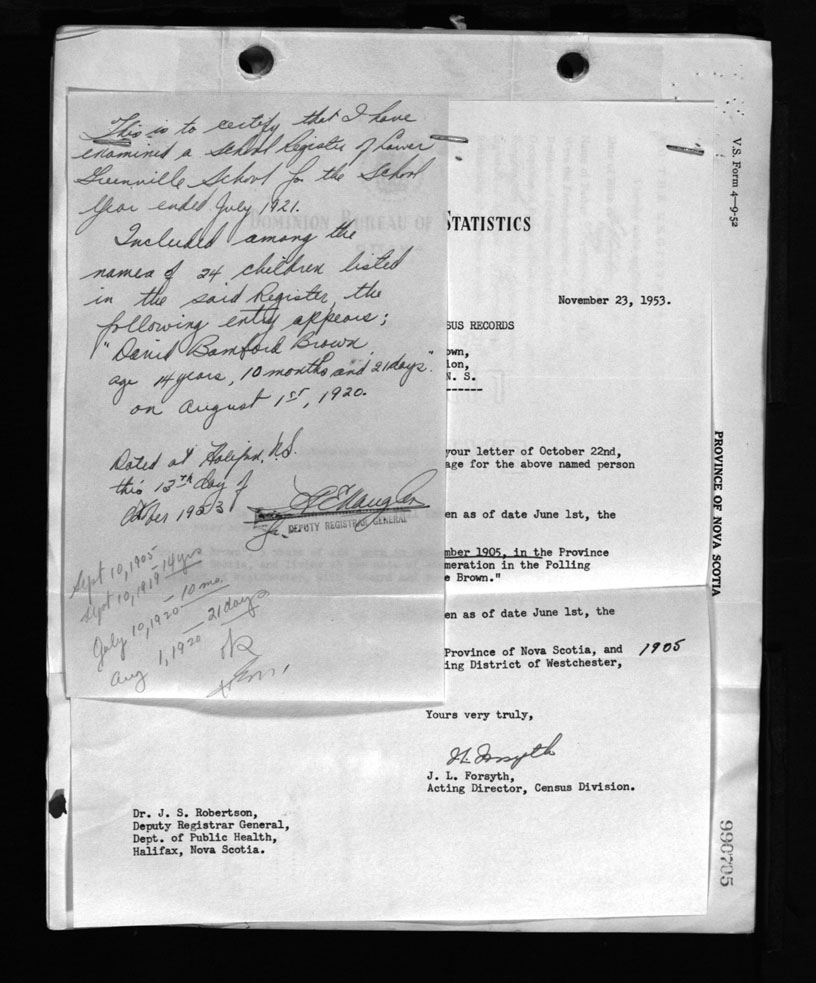 This is to certify that I have
examined a School Register of Lower
Greenville School for the School
Year ended July 1921.
Included among the
names of 24 children listed
in the said Register, the
following entry appears;
"David Bamford Brown,
age 14 years, 10 months and 21 days"
on August 1st, 1920.
Dated at Halifax, N.S.
this 13th day of
October 1953
DEPUTY REGISTRAR GENERAL
Sept 10, 1905
Sept 10, 1919 - 14 yrs
July 10, 1920 - 10 mo.
Aug 1, 1920 - 21 days
OK
DOMINION BUREAU OF STATISTICS
November 23, 1953.
SUS RECORDS
own,
ion,
N. S.
your letter of October 22nd,
age for the above named person
en as of date June 1st, the
mber 1905, in the Province
meration in the Polling
e Brown."
en as of date June 1st, the
Province of Nova Scotia, and 1905
ing District of Westchester,
Yours very truly,
J. L. Forsyth
J. L. Forsyth,
Acting Director, Census Division.
Dr. J. S. Robertson,
Deputy Registrar General,
Dept. of Public Health,
Halifax, Nova Scotia.
V.S. Form 4—9-52
PROVINCE OF NOVA SCOTIA
990705